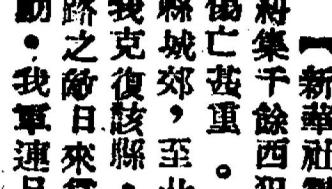 【新華社
糾集千餘西犯
傷亡甚重。
縣城郊，至此
我克復該縣，
路之敵日來
動。我軍連日